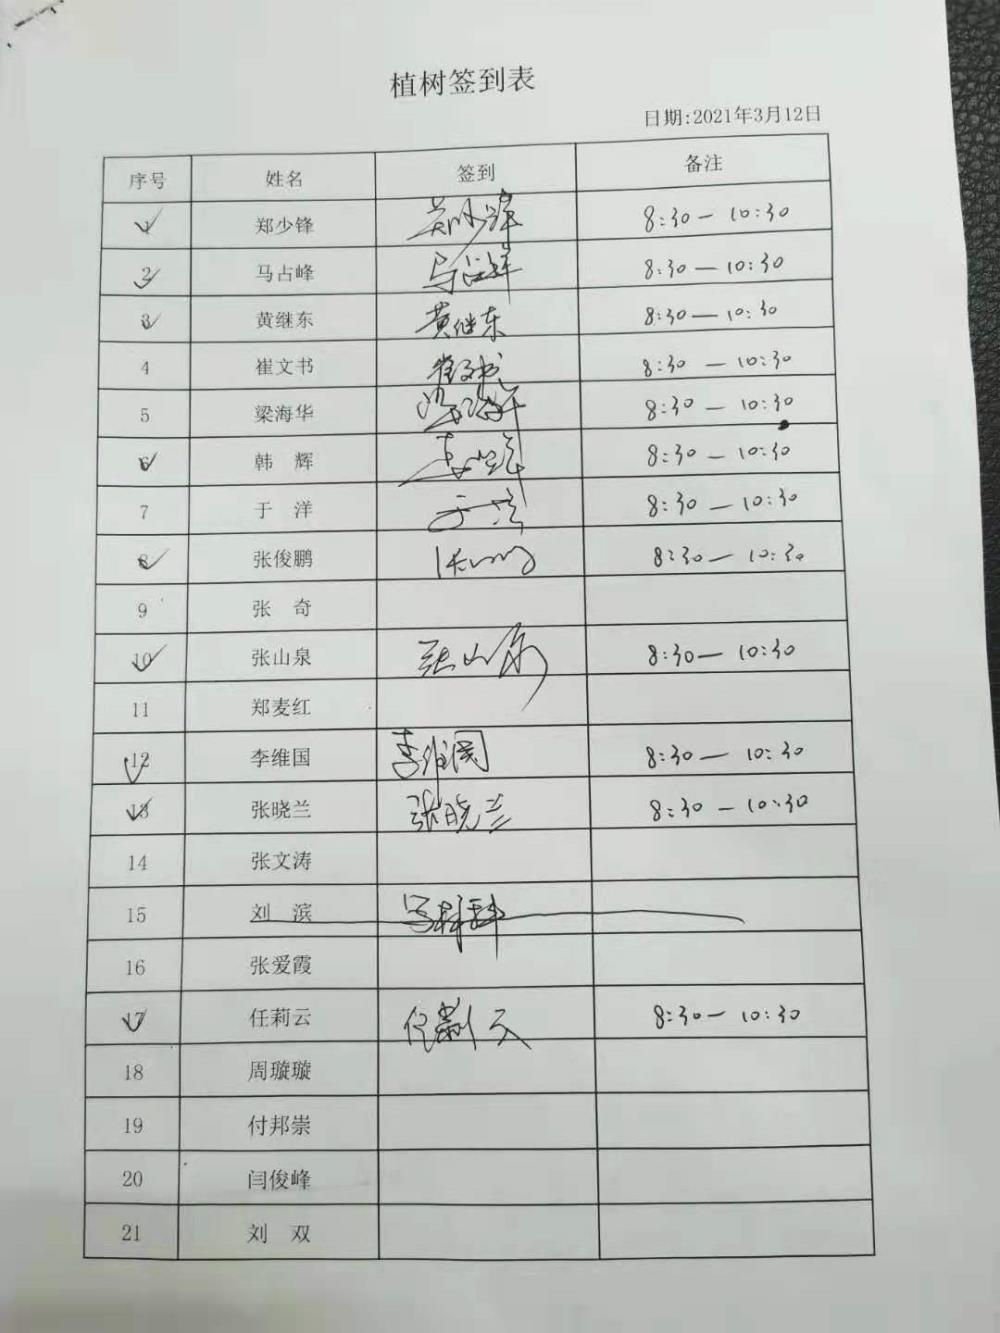 植树签到表
日期:2021年3月12日
序号 姓名 签到 备注
1 郑少锋 8:30-10:30
2 马占峰 8:30-10:30
3 黄继东 黄继东 8:30-10:30
4 崔文书 崔文书 8:30-10:30
5 梁海华 8:30-10:30
6 韩 辉 8:30-10:30
7 于 洋 于洋 8:30-10:30
8 张俊鹏 8:30-10:30
9 张 奇
10 张山泉 张山泉 8:30-10:30
11 郑麦红
12 李维国 李维国 8:30-10:30
13 张晓兰 张晓兰 8:30-10:30
14 张文涛
15 刘 滨
16 张爱霞
17 任莉云 任莉云 8:30-10:30
18 周璇璇
19 付邦崇
20 闫俊峰
21 刘 双